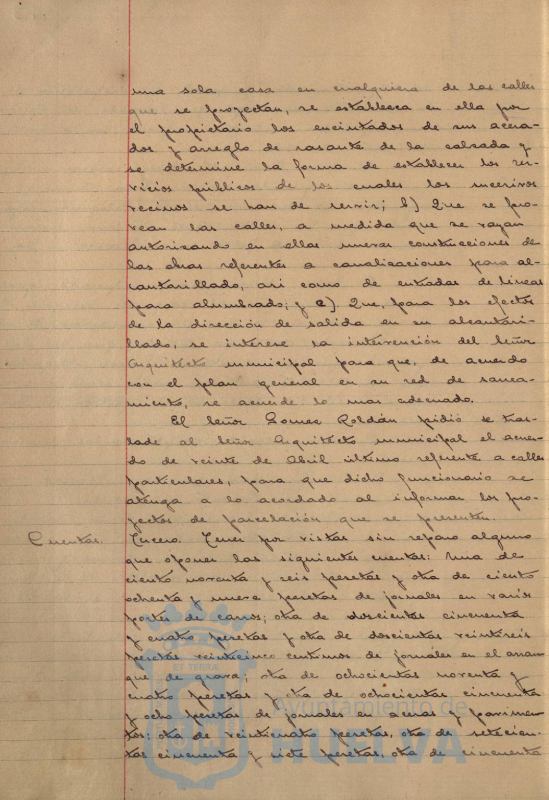 una sola casa en cualquiera de las calles
que se proyectan, se establezca en ella por
el propietario los encintados de sus acera-
dos y arreglo de rasante de la calzada y
se determine la forma de establecer los ser-
vicios públicos de los cuales los sucesivos
vecinos se han de servir; b) Que se pro-
vean las calles, a medida que se vayan
autorizando en ellas nuevas construcciones de
las obras referentes a canalizaciones para al-
cantarillado, asi como de entradas de lineas
para alumbrado; y c) Que, para los efectos
de la dirección de salida en su alcantari-
llado, se interese la intervención del Señor
Arquitecto municipal para que, de acuerdo
con el plan general en su red de sanea-
miento, se acuerde lo mas adecuado.
El Señor Gomez Roldán pidió se tras-
lade al Señor Arquitecto municipal el acuer-
do de veinte de Abril último referente a calles
particulares, para que dicho funcionario se
atenga a lo acordado al informar los pro-
yectos de parcelación que se presenten.
Cuentas. Tercero. Tener por vistas sin reparo alguno
que oponer las siguientes cuentas: Una de
ciento noventa y seis pesetas y otra de ciento
ochenta y nueve pesetas de jornales en varios
portes de carros; otra de doscientas cincuenta
y cuatro pesetas y otra de doscientas veintiseis
pesetas veinticinco centimos de jornales en el arran-
que de grava; otra de ochocientas noventa y
cuatro pesetas y otra de ochocientas cincuenta
y ocho pesetas de jornales en aceras y pavimen-
tos; otra de veinticuatro pesetas, otra de setecien-
tas cincuenta y siete pesetas, otra de cincuenta
Ayuntamiento de
HUELVA